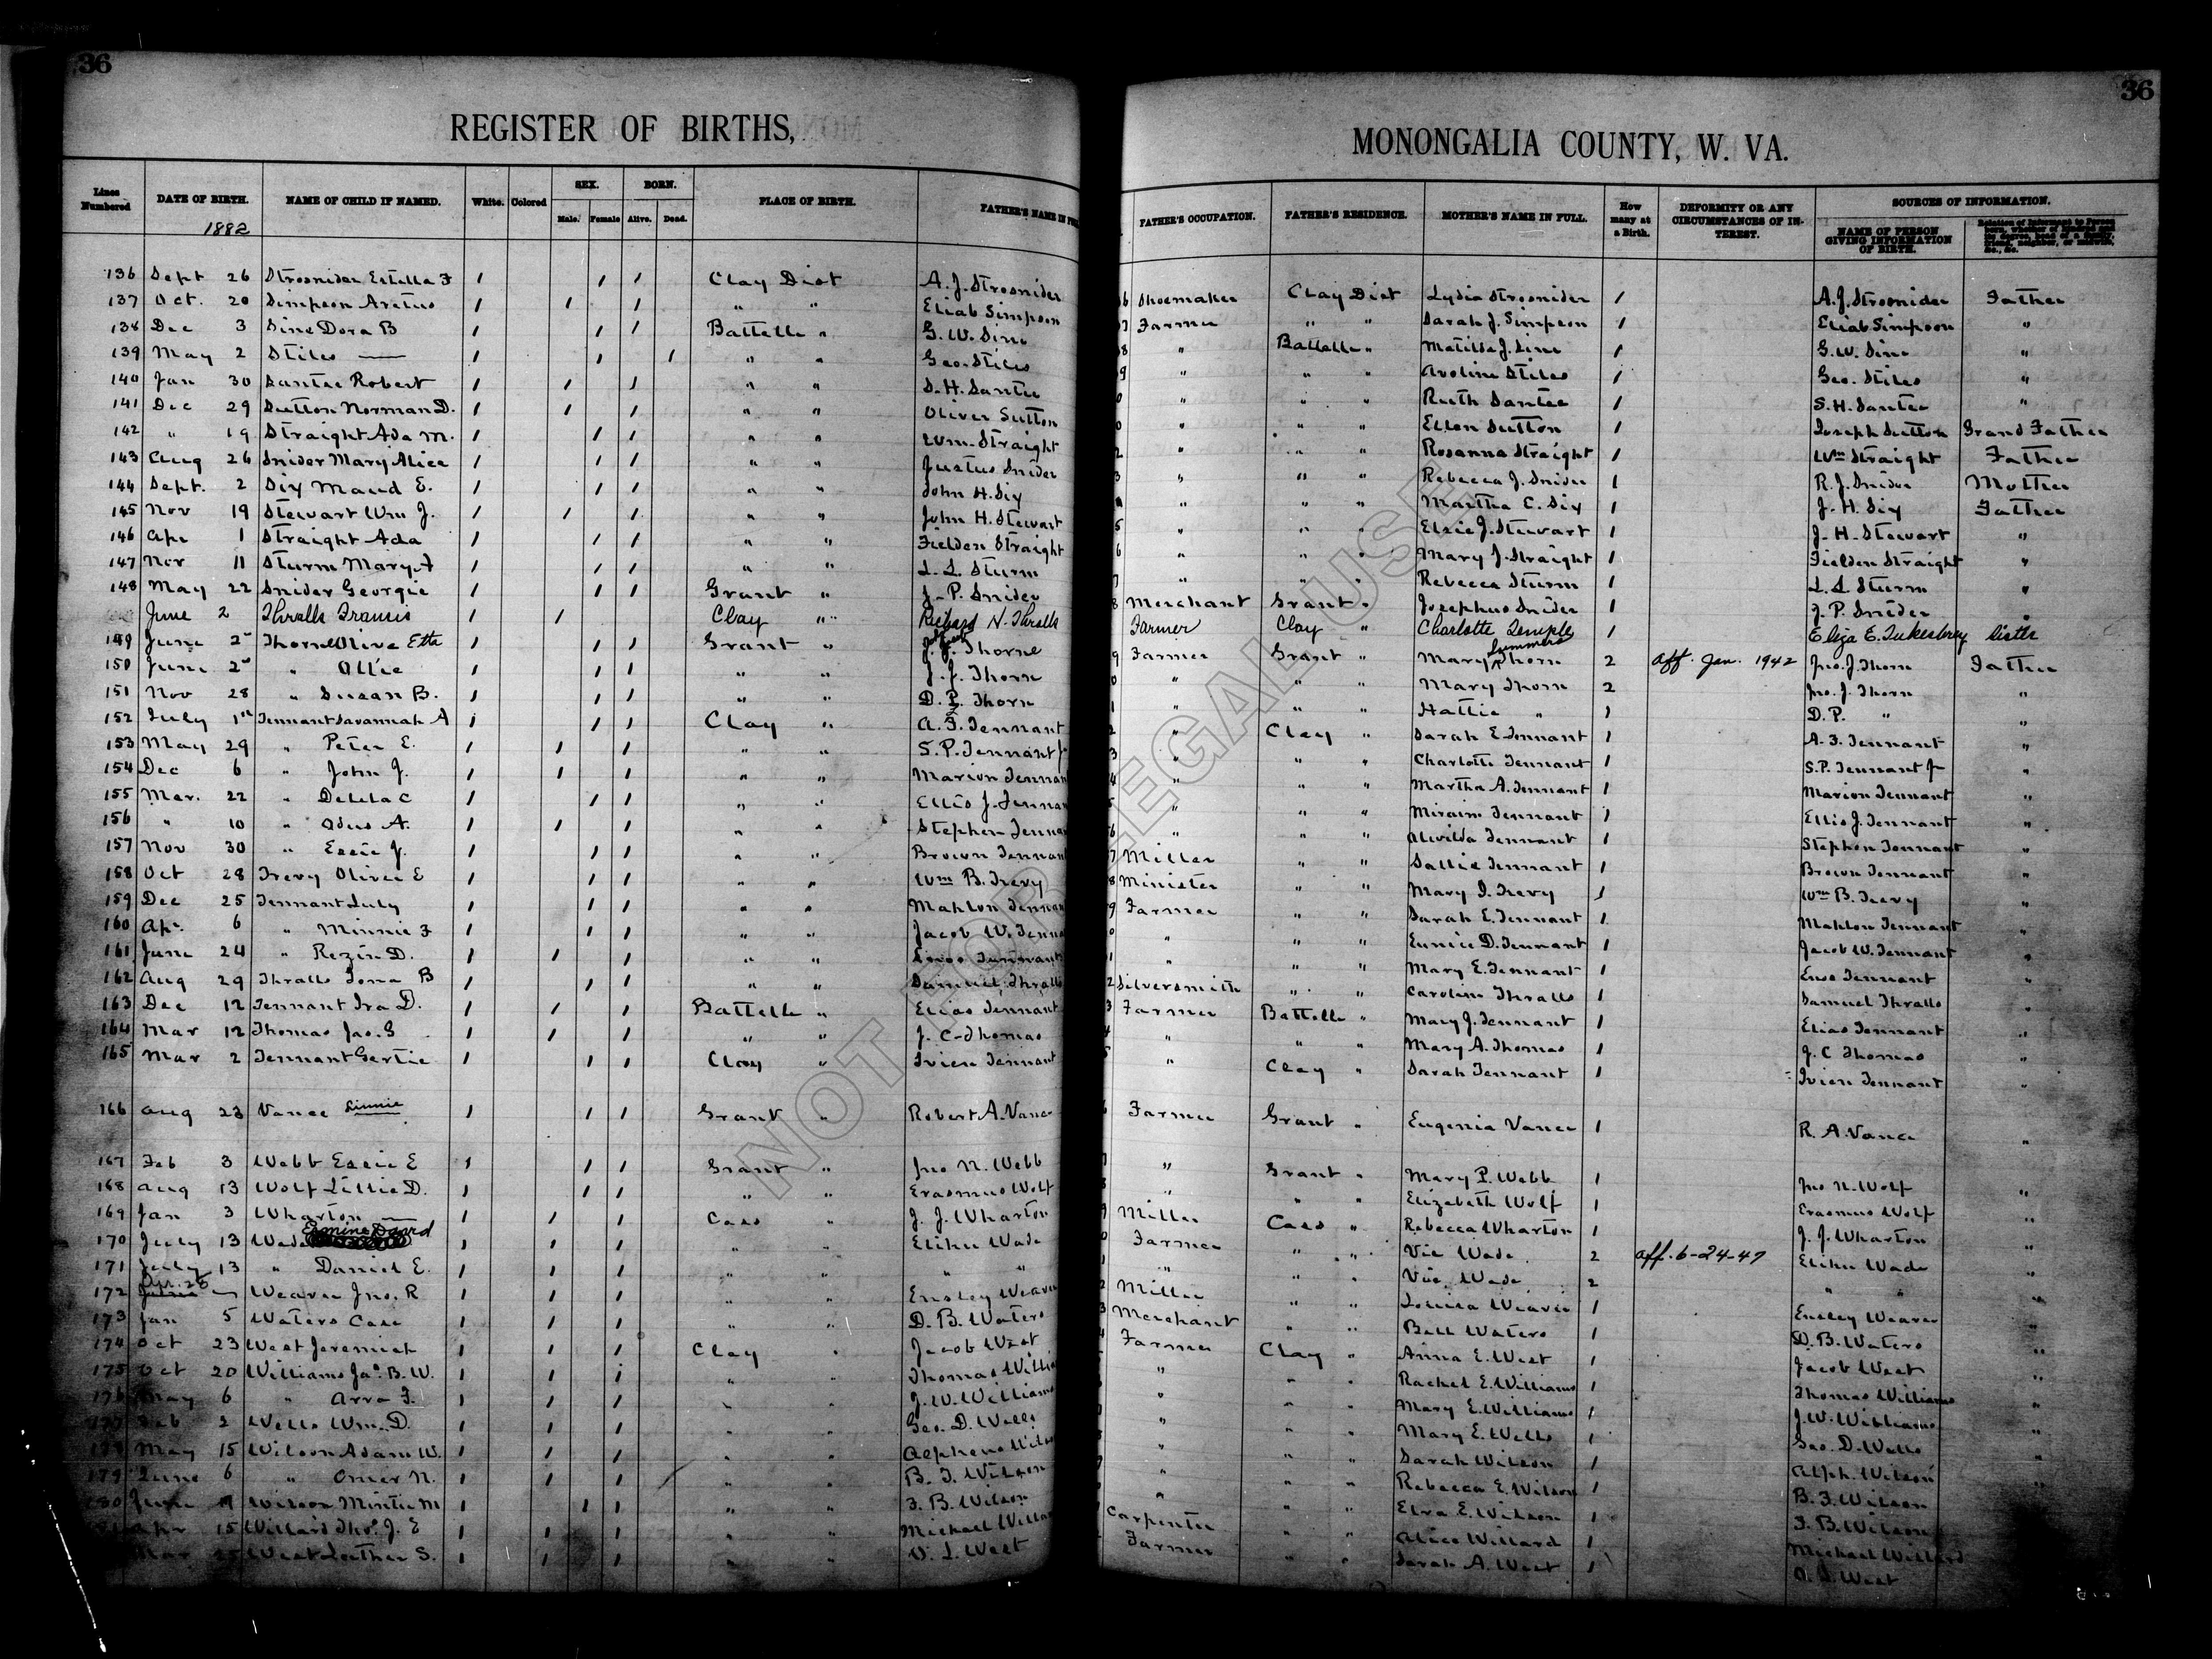 36
36
REGISTER OF BIRTHS,
MONONGALIA COUNTY, W. VA.
Lines Numbered DATE OF BIRTH. NAME OF CHILD IF NAMED. White. Colored SEX. Male. Female BORN. Alive. Dead. PLACE OF BIRTH. FATHER'S NAME IN FATHER'S OCCUPATION. FATHER'S RESIDENCE. MOTHER'S NAME IN FULL. How many at a Birth. DEFORMITY OR ANY CIRCUMSTANCES OF INTEREST. SOURCES OF INFORMATION. NAME OF PERSON GIVING INFORMATION OF BIRTH. Relation of Informant to Person
1882
136 Sept 26 Strosnider Estella F 1 1 1 Clay Dist A. J. Strosnider Shoemaker Clay Dist Lydia Strosnider 1 A. J. Strosnider Father
137 Oct. 20 Simpson Aretus 1 1 1 " " Eliab Simpson Farmer " " Sarah J. Simpson 1 Eliab Simpson "
138 Dec 3 Sine Dora B 1 1 1 Battelle " G. W. Sine " Battelle " Matilda J. Sine 1 G. W. Sine "
139 May 2 Stiles — 1 1 1 " " Geo. Stiles " " " Avoline Stiles 1 Geo. Stiles "
140 Jan 30 Santee Robert 1 1 1 " " S. H. Santee " " " Ruth Santee 1 S. H. Santee "
141 Dec 29 Sutton Norman D. 1 1 1 " " Oliver Sutton " " " Ellen Sutton 1 Joseph Sutton Grand Father
142 " 19 Straight Ada M. 1 1 1 " " Wm. Straight " " " Rosanna Straight 1 Wm Straight Father
143 Aug 26 Snider Mary Alice 1 1 1 " " Justus Snider " " " Rebecca J. Snider 1 R. J. Snider Mother
144 Sept. 2 Six Maud E. 1 1 1 " " John H. Six " " " Martha C. Six 1 J. H. Six Father
145 Nov 19 Stewart Wm J. 1 1 1 " " John H. Stewart " " " Elsie J. Stewart 1 J. H. Stewart "
146 Apr 1 Straight Ada 1 1 1 " " Fielden Straight " " " Mary J. Straight 1 Fielden Straight "
147 Nov 11 Sturm Mary A 1 1 1 " " L. L. Sturm " " " Rebecca Sturm 1 L. L. Sturm "
148 May 22 Snider Georgie 1 1 1 Grant " J. P. Snider Merchant Grant " Josephus Snider 1 J. P. Snider "
June 2 Thralls Francis 1 1 Clay " Richard H. Thralls Farmer Clay " Charlotte Temple 1 Eliza E. Tukesbrey Sister
149 June 2 Thorne Olive Etta 1 1 1 Grant " J. J. Thorne Farmer Grant " Mary Summers Thorn 2 aff. Jan. 1942 Jno. J. Thorn Father
150 June 2 " Ollie 1 1 1 " " J. J. Thorn " " " Mary Thorn 2 Jno. J. Thorn "
151 Nov 28 " Susan B. 1 1 1 " " D. P. Thorn " " " Hattie " 1 D. P. " "
152 July 1st Tennant Savannah A 1 1 1 Clay " A. F. Tennant " Clay " Sarah E Tennant 1 A. F. Tennant "
153 May 29 " Peter E. 1 1 1 " " S. P. Tennant Jr " " " Charlotte Tennant 1 S. P. Tennant Jr "
154 Dec 6 " John J. 1 1 1 " " Marion Tennan " " " Martha A. Tennant 1 Marion Tennant "
155 Mar. 22 " Delila C 1 1 1 " " Ellis J. Tennan " " " Miraim Tennant 1 Ellis J. Tennant "
156 " 10 " Odus A. 1 1 1 " " Stephen Tennan " " " Alvilda Tennant 1 Stephen Tennant "
157 Nov 30 " Essie J. 1 1 1 " " Brown Tennant Miller " " Sallie Tennant 1 Brown Tennant "
158 Oct 28 Trevy Olivee E 1 1 1 " " Wm B. Trevy Minister " " Mary I. Trevy 1 Wm B. Trevy "
159 Dec 25 Tennant Luly 1 1 1 " " Mahlon Tennan Farmer " " Sarah E. Tennant 1 Mahlon Tennant "
160 Ap. 6 " Minnie F 1 1 1 " " Jacob W. Tenna " " " Eunice D. Tennant 1 Jacob W. Tennant "
161 June 24 " Rezin D. 1 1 1 " " Enos Tennant " " " Mary E. Tennant 1 Enos Tennant "
162 Aug 29 Thralls Iona B 1 1 1 " " Samuel Thralls Silversmith " " Caroline Thralls 1 Samuel Thralls "
163 Dec 12 Tennant Ira D. 1 1 1 Battelle " Elias Tennant Farmer Battelle " Mary J. Tennant 1 Elias Tennant "
164 Mar 12 Thomas Jas. S 1 1 1 " " J. C. Thomas " " " Mary A. Thomas 1 J. C Thomas "
165 Mar 2 Tennant Gertie 1 1 1 Clay " Ivien Tennant " Clay " Sarah Tennant 1 Ivien Tennant "
166 Aug 23 Vance Linnie 1 1 1 Grant " Robert A. Vance Farmer Grant " Eugenia Vance 1 R. A. Vance "
167 Feb 3 Webb Essie E 1 1 1 Grant " Jno N. Webb " Grant " Mary P. Webb 1 Jno N. Wolf "
168 Aug 13 Wolf Lillie D. 1 1 1 " " Erasmus Wolf " " " Elizabeth Wolf 1 Erasmus Wolf "
169 Jan 3 Wharton — 1 1 1 Cass " J. J. Wharton Miller Cass " Rebecca Wharton 1 J. J. Wharton "
170 July 13 Wade Ermine David 1 1 1 " " Elihu Wade Farmer " " Vic Wade 2 aff. 6-24-47 Elihu Wade "
171 July 13 " Daniel E. 1 1 1 " " " " " " " Vic Wade 2 " " "
172 Apr. 28 Weaver Jno. R 1 1 1 " " Ensley Weaver Miller " " Louisa Weaver 1 Ensley Weaver "
173 Jan 5 Waters Carl 1 1 1 " " D. B. Waters Merchant " " Bell Waters 1 D. B. Waters "
174 Oct 23 West Jeremiah 1 1 1 Clay " Jacob West Farmer Clay " Anna E. West 1 Jacob West "
175 Oct 20 Williams Jas. B. W. 1 1 1 " " Thomas Willia " " " Rachel E. Williams 1 Thomas Williams "
176 May 6 " Arra F. 1 1 1 " " J. W. Williams " " " Mary E. Williams 1 J. W. Williams "
177 Feb 2 Wells Wm. D. 1 1 1 " " Geo. D. Wells " " " Mary E. Wells 1 Geo. D. Wells "
178 May 15 Wilson Adam W. 1 1 1 " " Alpheus Wilso " " " Sarah Wilson 1 Alph. Wilson "
179 June 6 " Omer N. 1 1 1 " " B. F. Wilson " " " Rebecca E. Wilson 1 B. F. Wilson
180 June 9 Wilson Mintie M 1 1 1 " " F. B. Wilson " " " Elva E. Wilson 1 F. B. Wilson
Apr 15 Willard Thos. J. E 1 1 1 " " Michael Willa Carpenter " " Alice Willard 1 Michael Willard
Mar 25 West Luther S. 1 1 1 " " West Farmer " " Sarah A. West 1 West
NOT FOR LEGAL USE